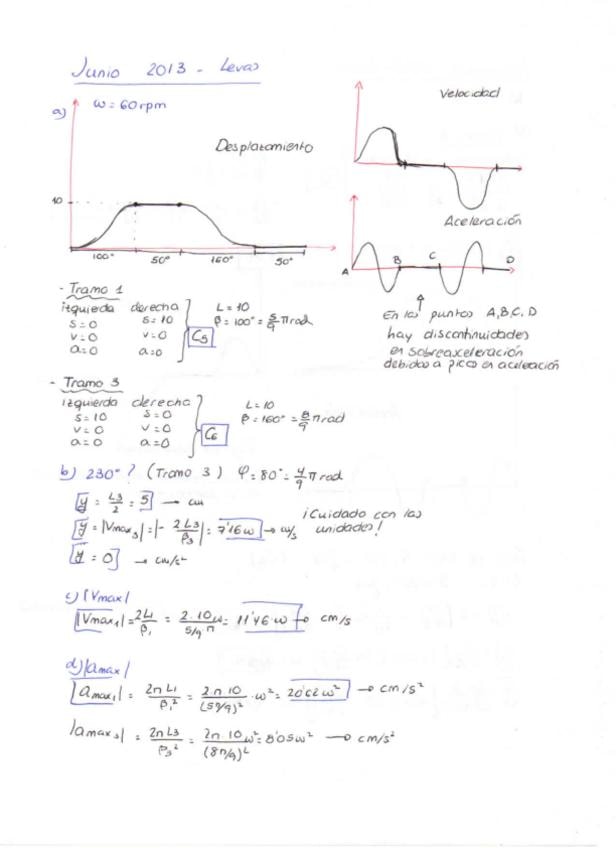 Junio 2013 - Levas
a) ω = 60 rpm
Velocidad
Desplazamiento
10
100° 50° 160° 50°
Aceleración
A B C D
En los puntos A,B,C,D
hay discontinuidades
en sobreaceleración
debidos a pico en aceleración
- Tramo 1
izquieda derecha
s=0 s=10
v=0 v=0
a=0 a=0
C5
L=10
β=100°=5/9 π rad
- Tramo 3
izquierda derecha
s=10 s=0
v=0 v=0
a=0 a=0
C6
L=10
β=160°=8/9 π rad
b) 230°? (Tramo 3) φ=80°=4/9 π rad
y = L3/2 = 5 → cm
ẏ = |Vmax3| = |- 2L3/β3| = 7'16 ω → cm/s
¡Cuidado con las
unidades!
ÿ = 0 → cm/s²
c) |Vmax|
|Vmax1| = 2L1/β1 = 2·10ω/5/9 π = 11'46·ω → cm/s
d) |amax|
|amax1| = 2π L1/β1² = 2π 10/(5π/9)² · ω² = 20'62 ω² → cm/s²
|amax3| = 2π L3/β3² = 2π·10/(8π/9)² ω² = 8'05 ω² → cm/s²